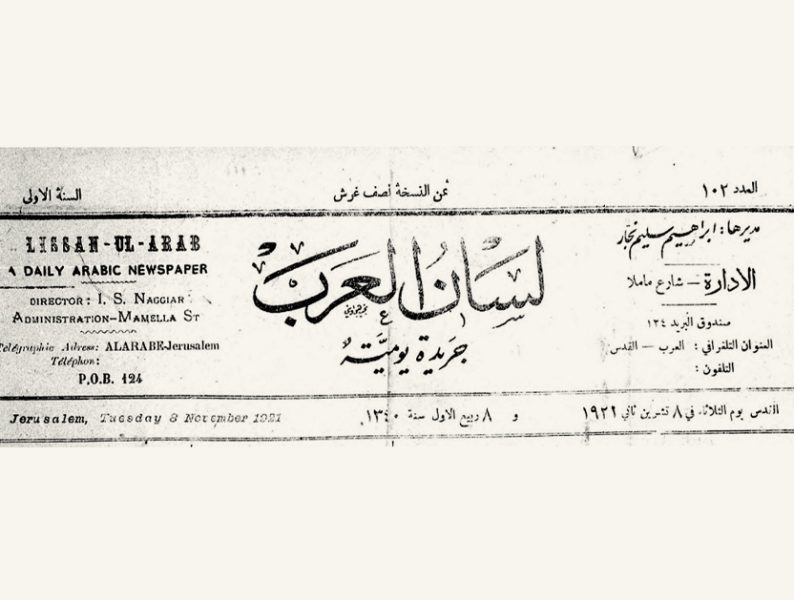 العدد ١٠٢
ثمن النسخة نصف غرش
السنة الاولى
مديرها: ابراهيم سليم نجار
الادارة – شارع ماملا
صندوق البريد ١٢٤
العنوان التلغرافي: العرب – القدس
التلفون:
لسان العرب
جريدة يومية
LISSAN-UL-ARAB
A DAILY ARABIC NEWSPAPER
DIRECTOR: I. S. NAGGIAR
ADMINISTRATION-MAMELLA ST
Télégraphic Adress: ALARABE-Jerusalem
Téléphon:
P.O.B. 124
القدس يوم الثلاثاء في ٨ تشرين ثاني ١٩٢١
و ٨ ربيع الاول سنة ١٣٤٠.
Jerusalem, Tuesday 8 November 1921